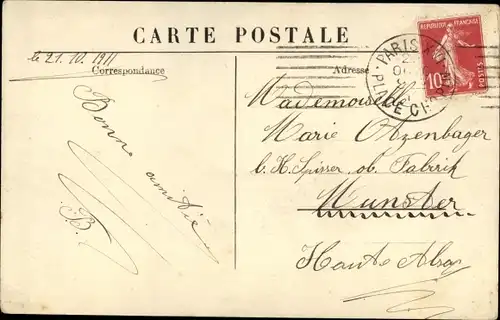 CARTE POSTALE
le 21. 10. 1911
Correspondance
Adresse
RÉPUBLIQUE FRANÇAISE
10
POSTES
PARIS
PL. DE
Bonne
amitié
B.
Mademoiselle
Marie Atzenbager
b. H. Spisser, ob. Fabrik
Munster
Haute Alsa